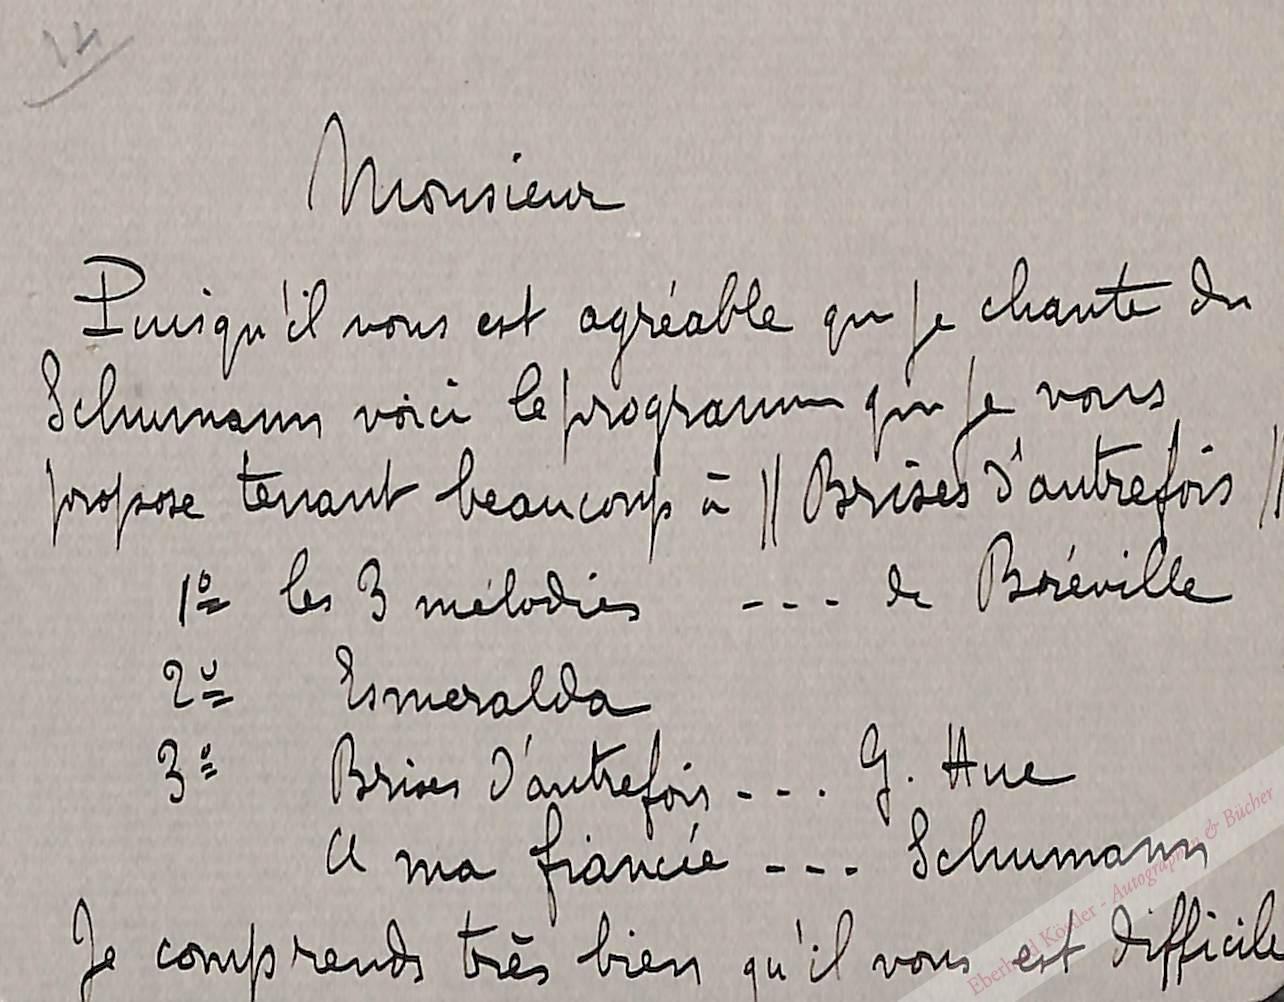 14
Monsieur
Puisqu'il vous est agréable que je chante du
Schumann voici le programme que je vous
propose tenant beaucoup à "Brises d'autrefois"
1º les 3 mélodies --- de Bréville
2º Esmeralda
3º Brises d'autrefois --- G. Hue
A ma fiancée --- Schumann
Je comprends très bien qu'il vous est difficile
Eberhard Köstler - Autographen & Bücher